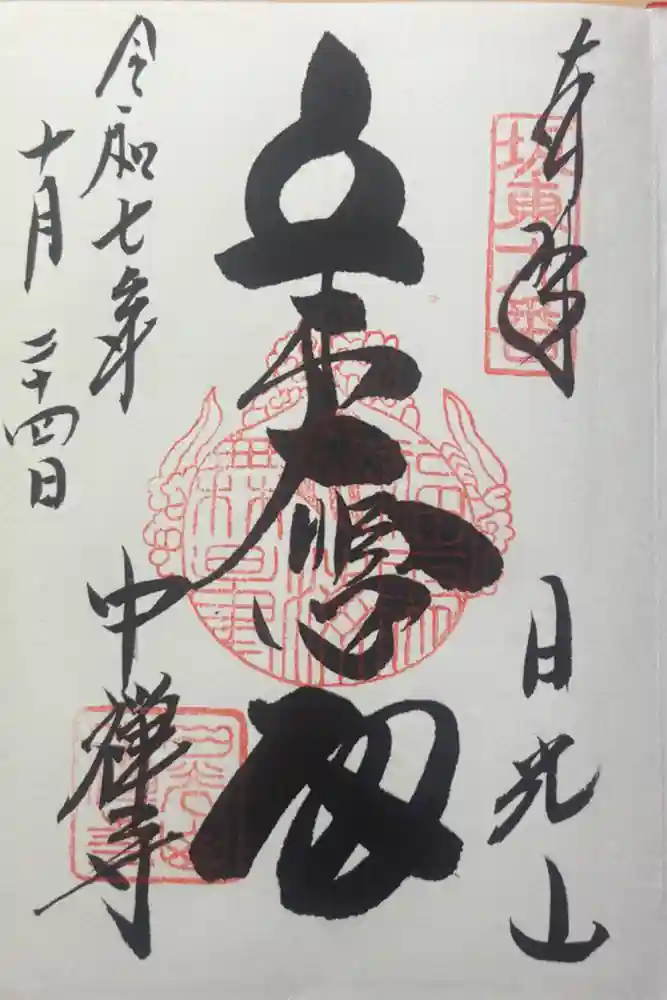 奉拝
坂東十八番
日光山
立木大悲殿
中禅寺
令和七年
十月二十四日